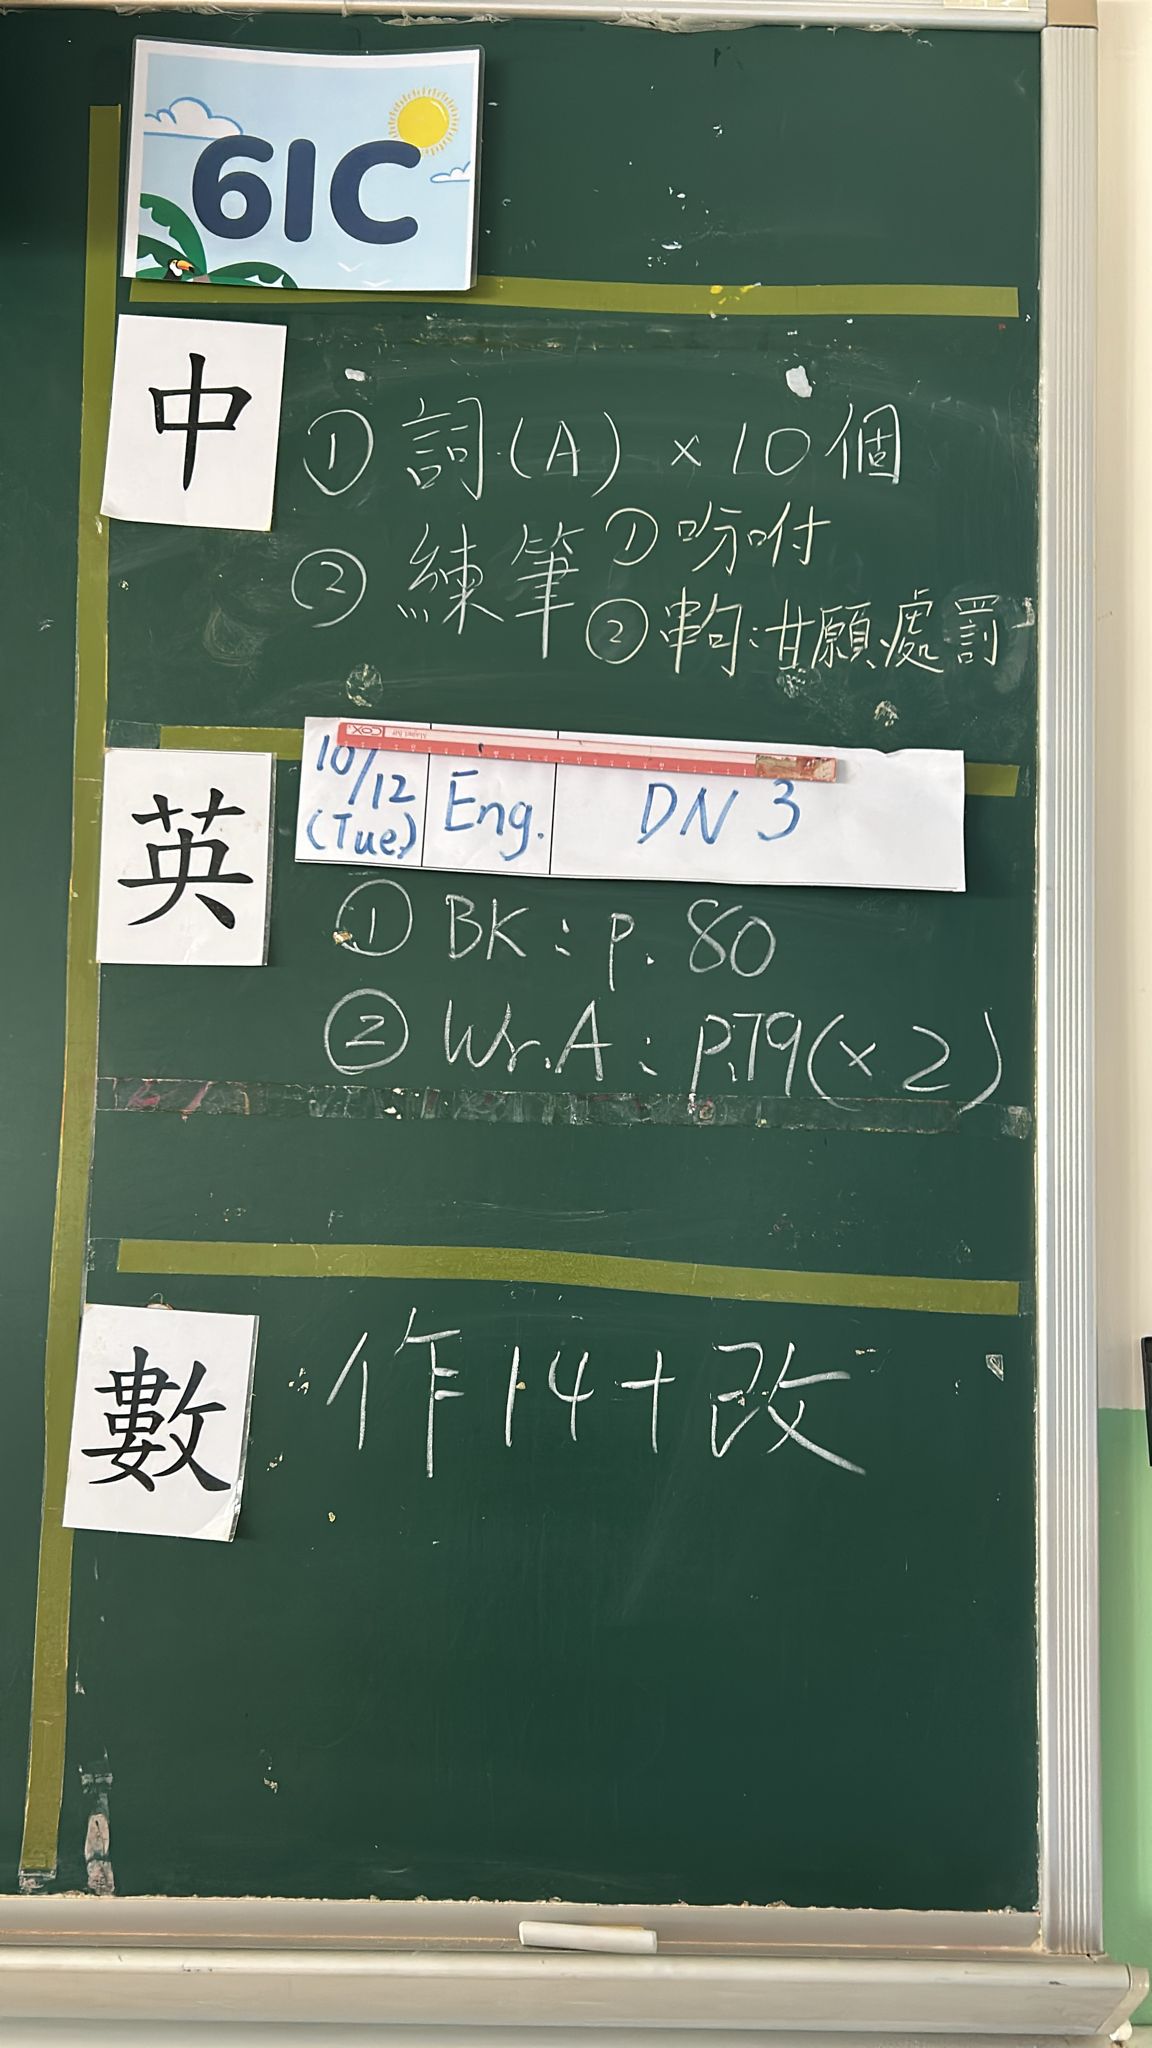 61C
中
① 詞(A) × 10個
② 練筆 ① 吩咐
② 串句:甘願、處罰
英
10/12 (Tue) Eng. DN 3
① BK : p. 80
② Wr.A : p.79(× 2)
數
作14+改